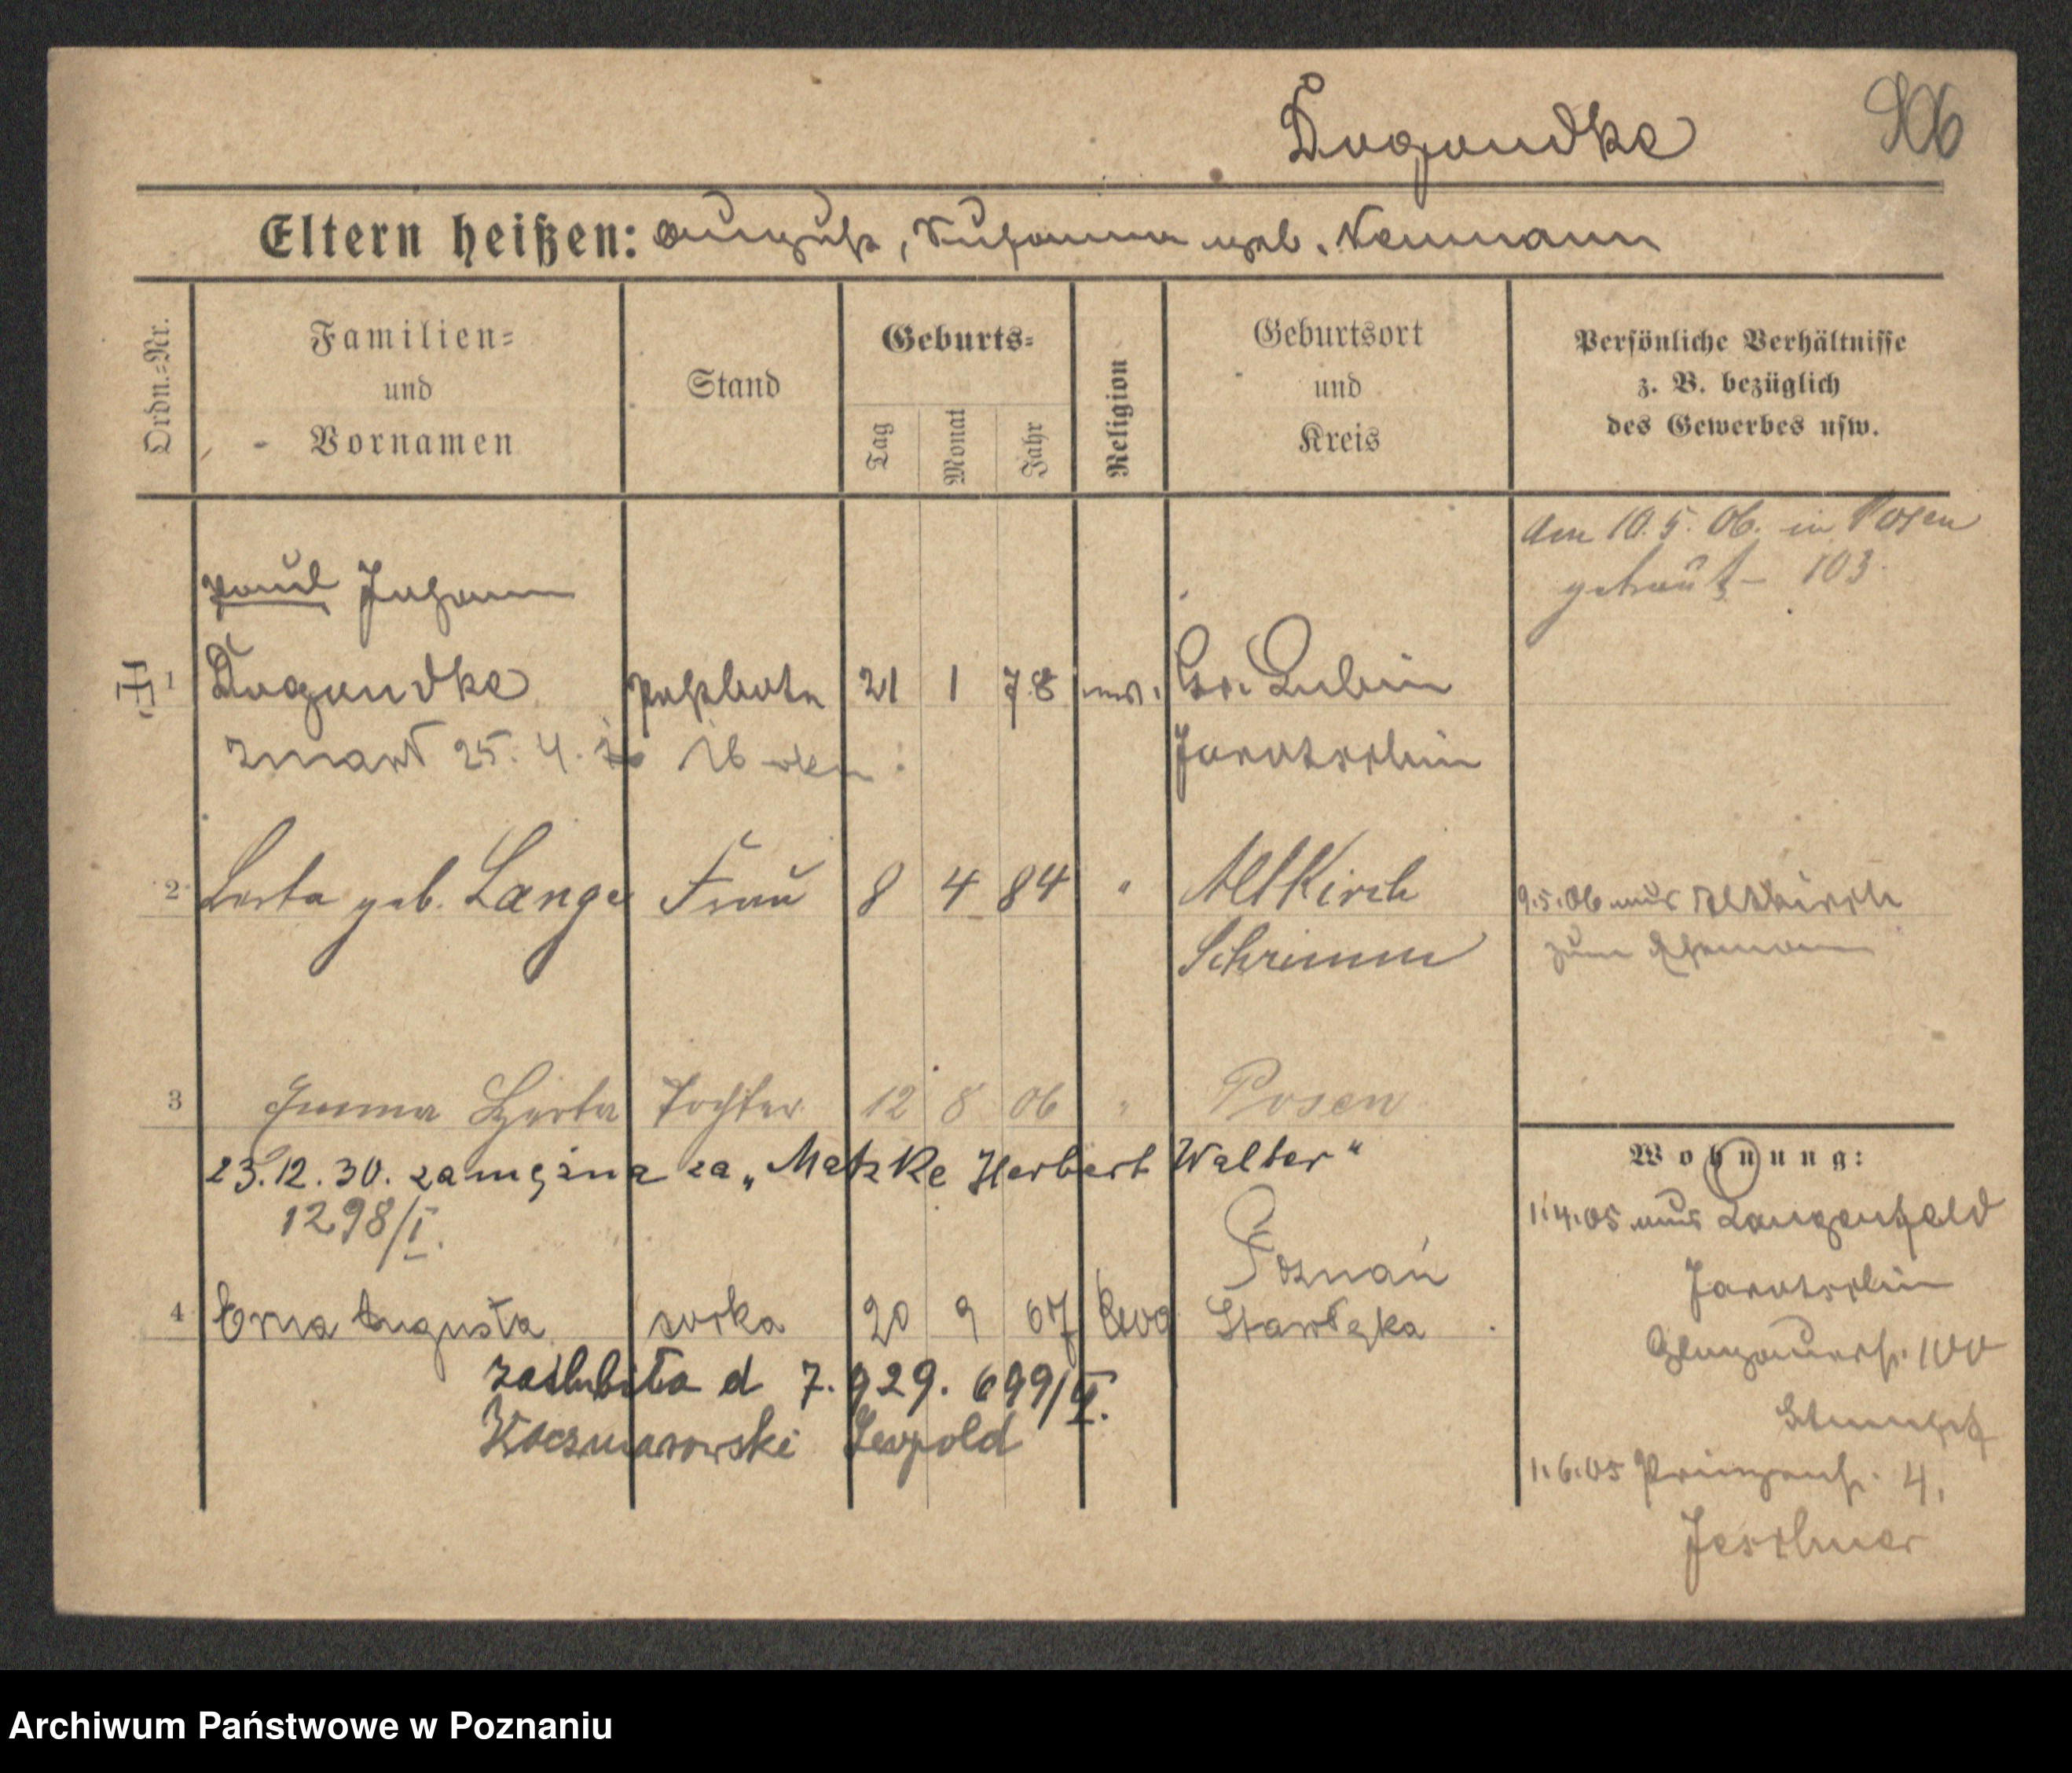 Dogondke 906
Eltern heißen: August, Susanna geb. Neumann
Ordn.=Nr.
Familien=
und
Vornamen
Stand
Geburts=
Tag
Monat
Jahr
Religion
Geburtsort
und
Kreis
Persönliche Verhältnisse
z. B. bezüglich
des Gewerbes usw.
Am 10.5.06. in Posen
getraut – 103
Paul Johann
1 Dogondke Postbote 21 1 78 ev. Gr. Lubin
zmarł 25. 4.
Jarotschin
2 Berta geb. Lange Frau 8 4 84 " AltKirch
Schrimm
9.5.06 aus Altkirch
zum Ehemann
3 Emma Herta Tochter 12 8 06 " Posen
23.12.30. zamężna za „Matzke Herbert Walter"
1298/I.
Poznań
4 Erna Augusta córka 20 9 07 Ewg Starołęka
zaślubiła d 7. 9 29. 699/II.
Kaczmarowski Leopold
Wohnung:
1.4.05 aus Langenfeld
Jarotschin
Glogauerstr. 100
1.6.05 Prinzenstr. 4.
Jeschner
Archiwum Państwowe w Poznaniu